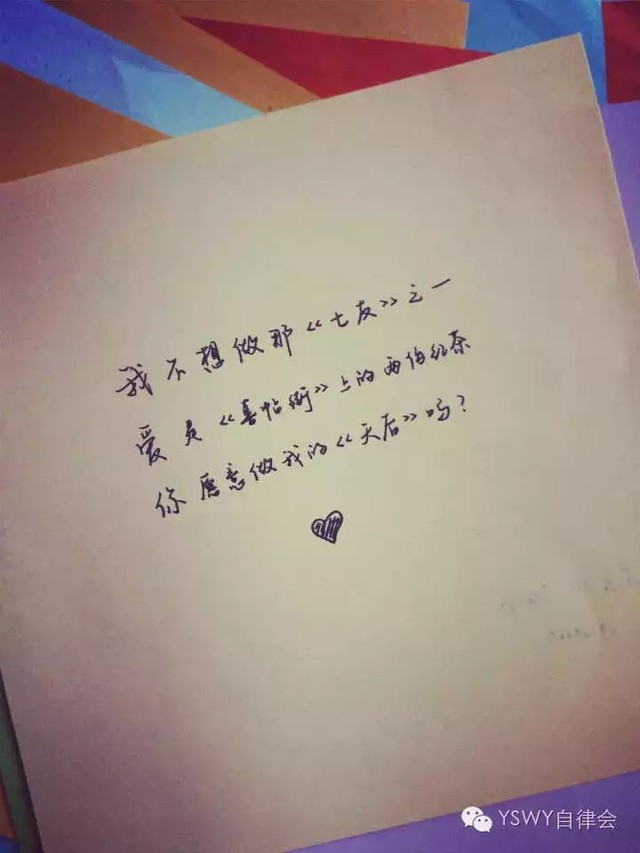 我不想做那《七友》之一
爱是《喜帖街》上的两份红茶
你愿意做我的《天后》吗?
YSWY自律会